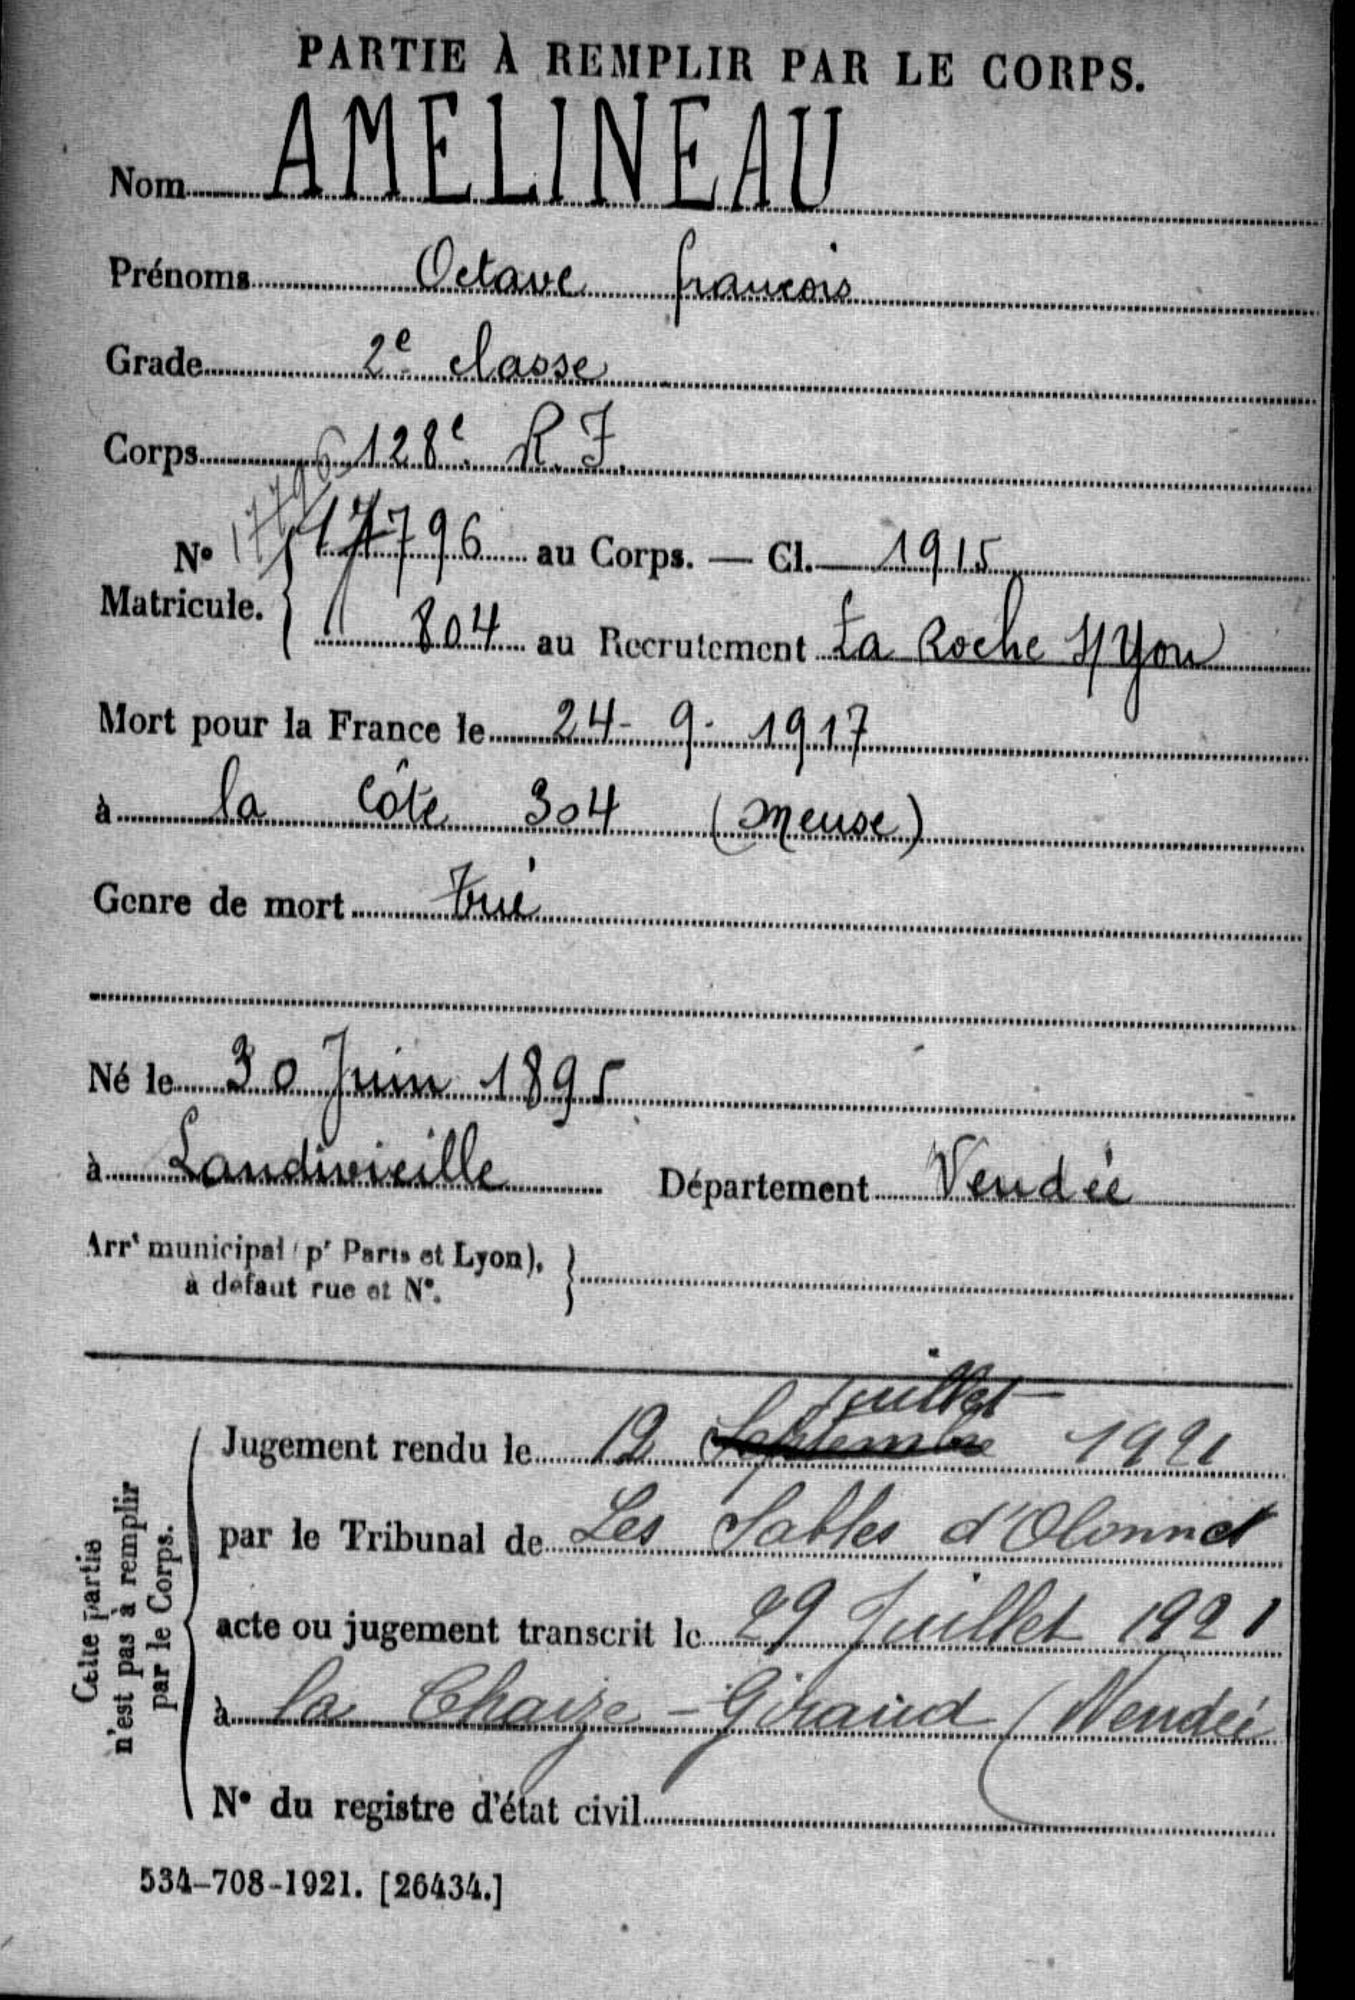 PARTIE À REMPLIR PAR LE CORPS.
Nom AMELINEAU
Prénoms Octave françois
Grade 2e classe
Corps 128e R. I.
17796
No Matricule. { 17796 au Corps. — Cl. 1915
804 au Recrutement La Roche s/Yon
Mort pour la France le 24 - 9 - 1917
à la Côte 304 (Meuse)
Genre de mort tué
Né le 30 Juin 1895
à Landivieille Département Vendée
Arrt municipal (pr Paris et Lyon), à défaut rue et No. }
Cette partie n'est pas à remplir par le Corps.
Juillet
Jugement rendu le 12 Septembre 1921
par le Tribunal de Les Sables d'Olonnes
acte ou jugement transcrit le 29 Juillet 1921
à la Chaize-Giraud (Vendée
No du registre d'état civil
534-708-1921. [26434.]